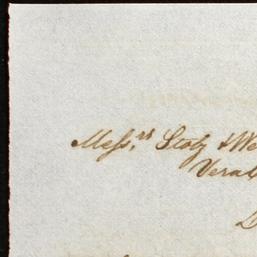 Messrs Stolz & We
Vera
D